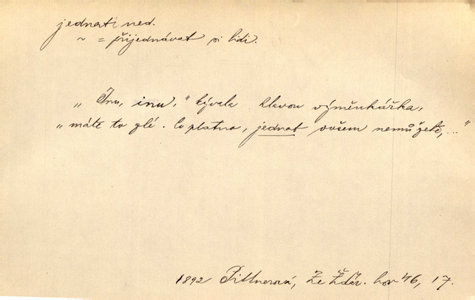 jednati ned.
~ = přijednávat si lidi.
„Inu, inu," kývala hlavou výměnkářka,
„máte to zlé. Co platno, jednat ovšem nemůžete,..."
1892 Pittnerová, Ze Žďár. hor 46, 17.